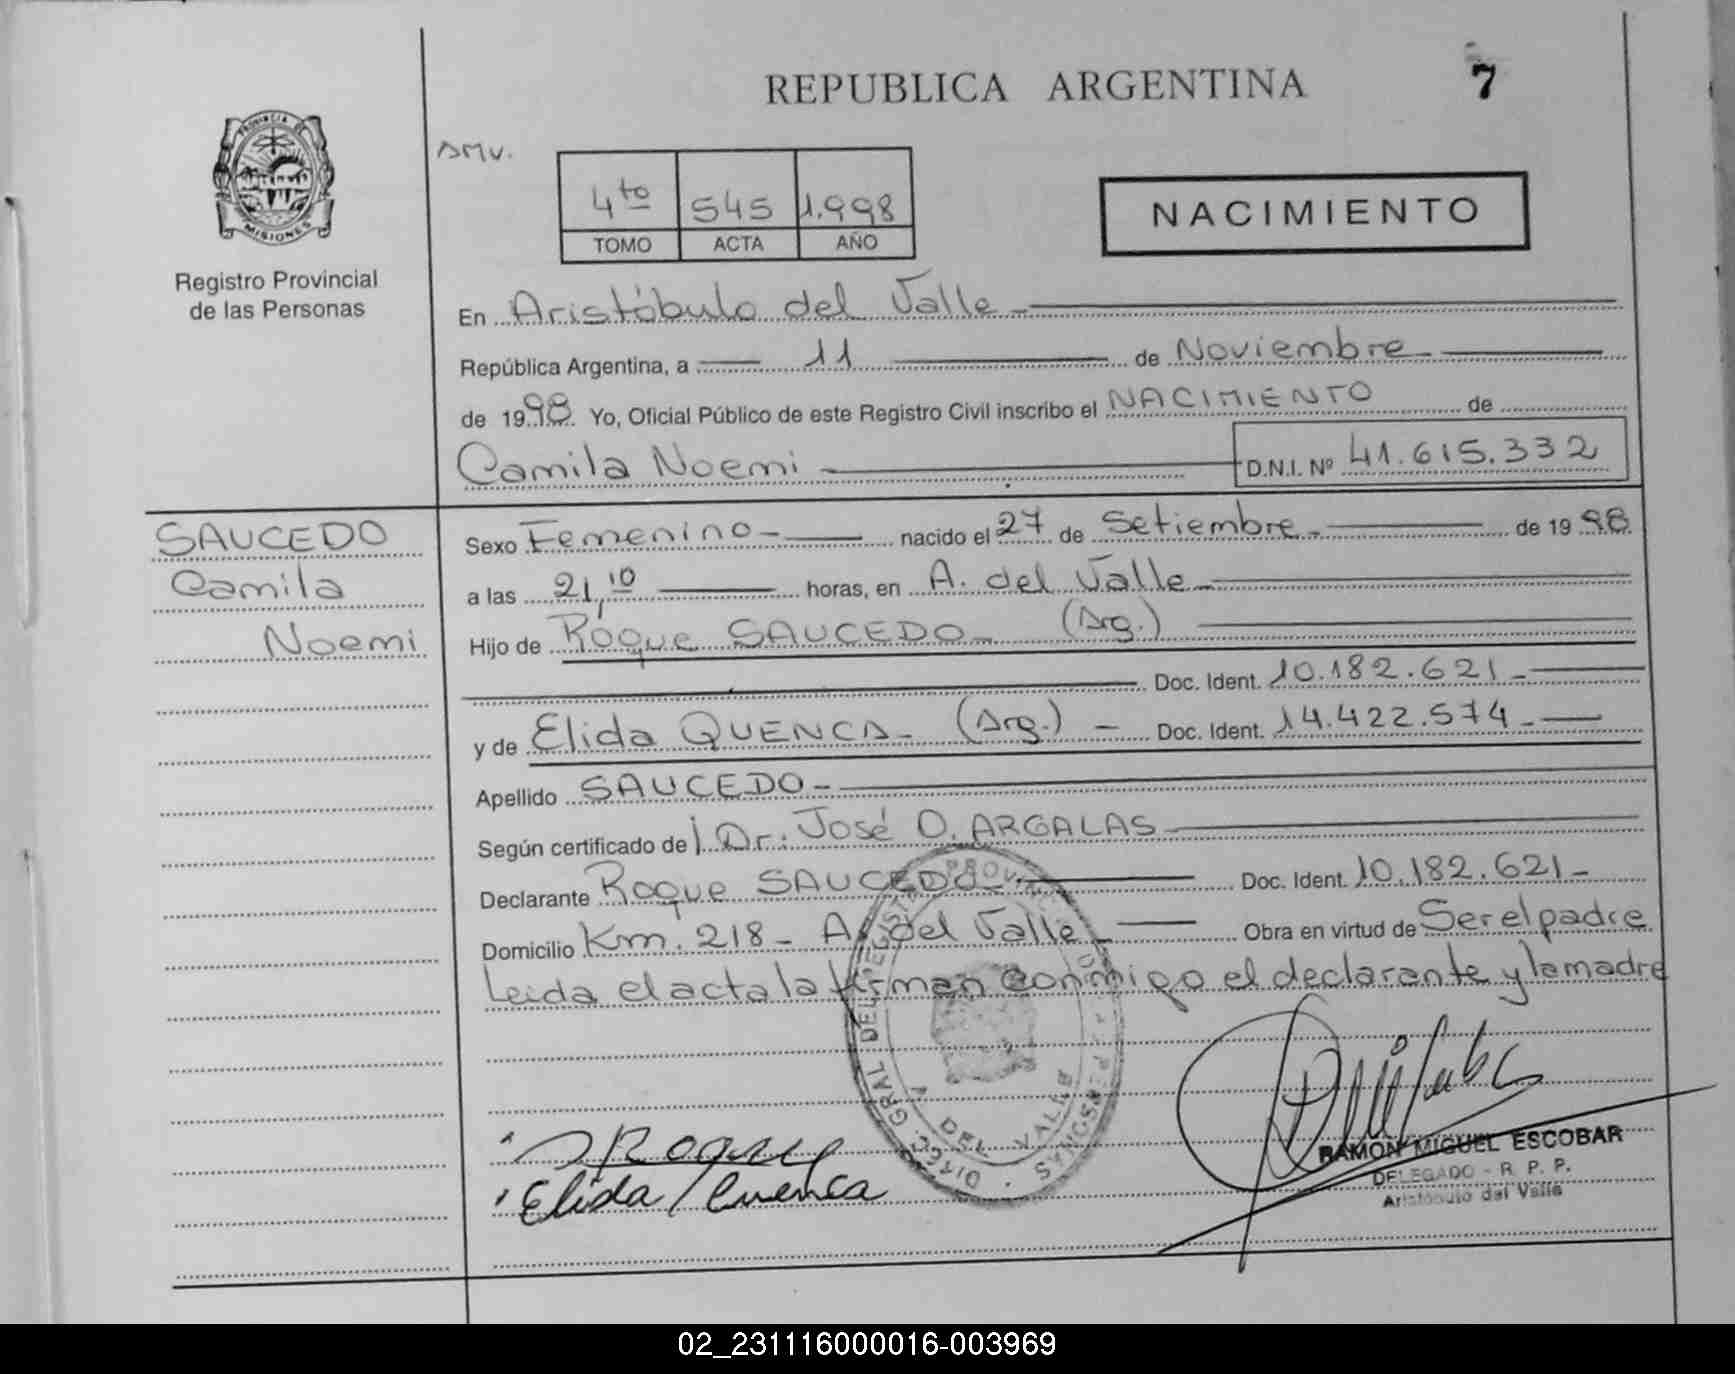 REPUBLICA ARGENTINA 7
PROVINCIA DE
MISIONES
Registro Provincial
de las Personas
DMV.
4to 545 1.998
TOMO ACTA AÑO
NACIMIENTO
En Aristóbulo del Valle
República Argentina, a 11 de Noviembre
de 1998 Yo, Oficial Público de este Registro Civil inscribo el NACIMIENTO de
Camila Noemi D.N.I. Nº 41.615.332
SAUCEDO
Camila
Noemi
Sexo Femenino nacido el 27 de Setiembre de 1998
a las 21,10 horas, en A. del Valle
Hijo de Roque SAUCEDO (Arg.)
Doc. Ident. 10.182.621
y de Elida QUENCA (Arg.) Doc. Ident. 14.422.574
Apellido SAUCEDO
Según certificado de Dr. José O. ARGALAS
Declarante Roque SAUCEDO Doc. Ident. 10.182.621
Domicilio Km. 218 - A. del Valle Obra en virtud de Ser el padre
Leida el acta la firman conmigo el declarante y la madre
DIREC. GRAL DEL REGISTRO PROVINCIAL DE LAS PERSONAS
A. DEL VALLE
Roque
Elida Cuenca
RAMON MIGUEL ESCOBAR
DELEGADO - R. P. P.
Aristóbulo del Valle
02_231116000016-003969